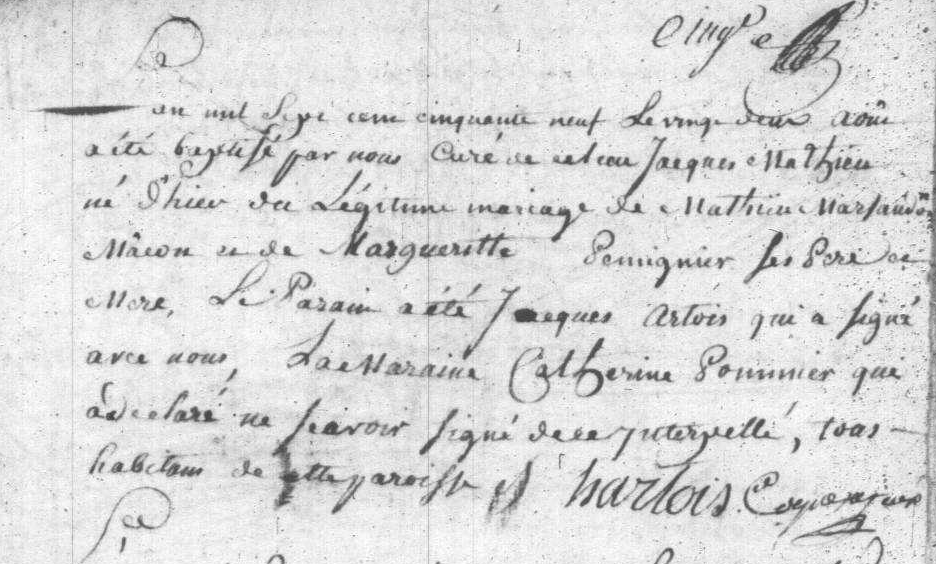 an mil Sept cent cinquante neuf Le vingt deux Aoûst
a été baptisé par nous Curé de ce lieu Jacques Mathieu
né d'hier du Légitime mariage de Mathieu Marsaudon
Mâcon et de Margueritte Pemignier ses Pere et
Mere, Le Parain a été Jacques Artois qui a signé
avec nous, La Maraine Catherine Pommier qui
a déclaré ne sçavoir signé de ce Interpellé, tous
habitans de cette paroisse
J hartois